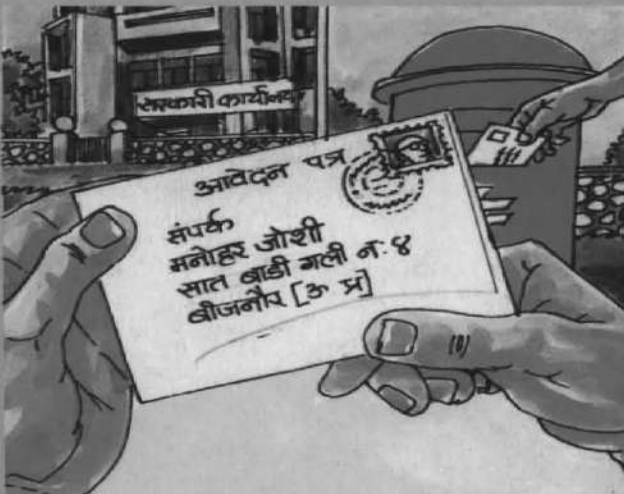 सरकारी कार्यालय
आवेदन पत्र
संपर्क
मनोहर जोशी
सात बाडी गली न. ४
बीजनौर [ऊ प्र]